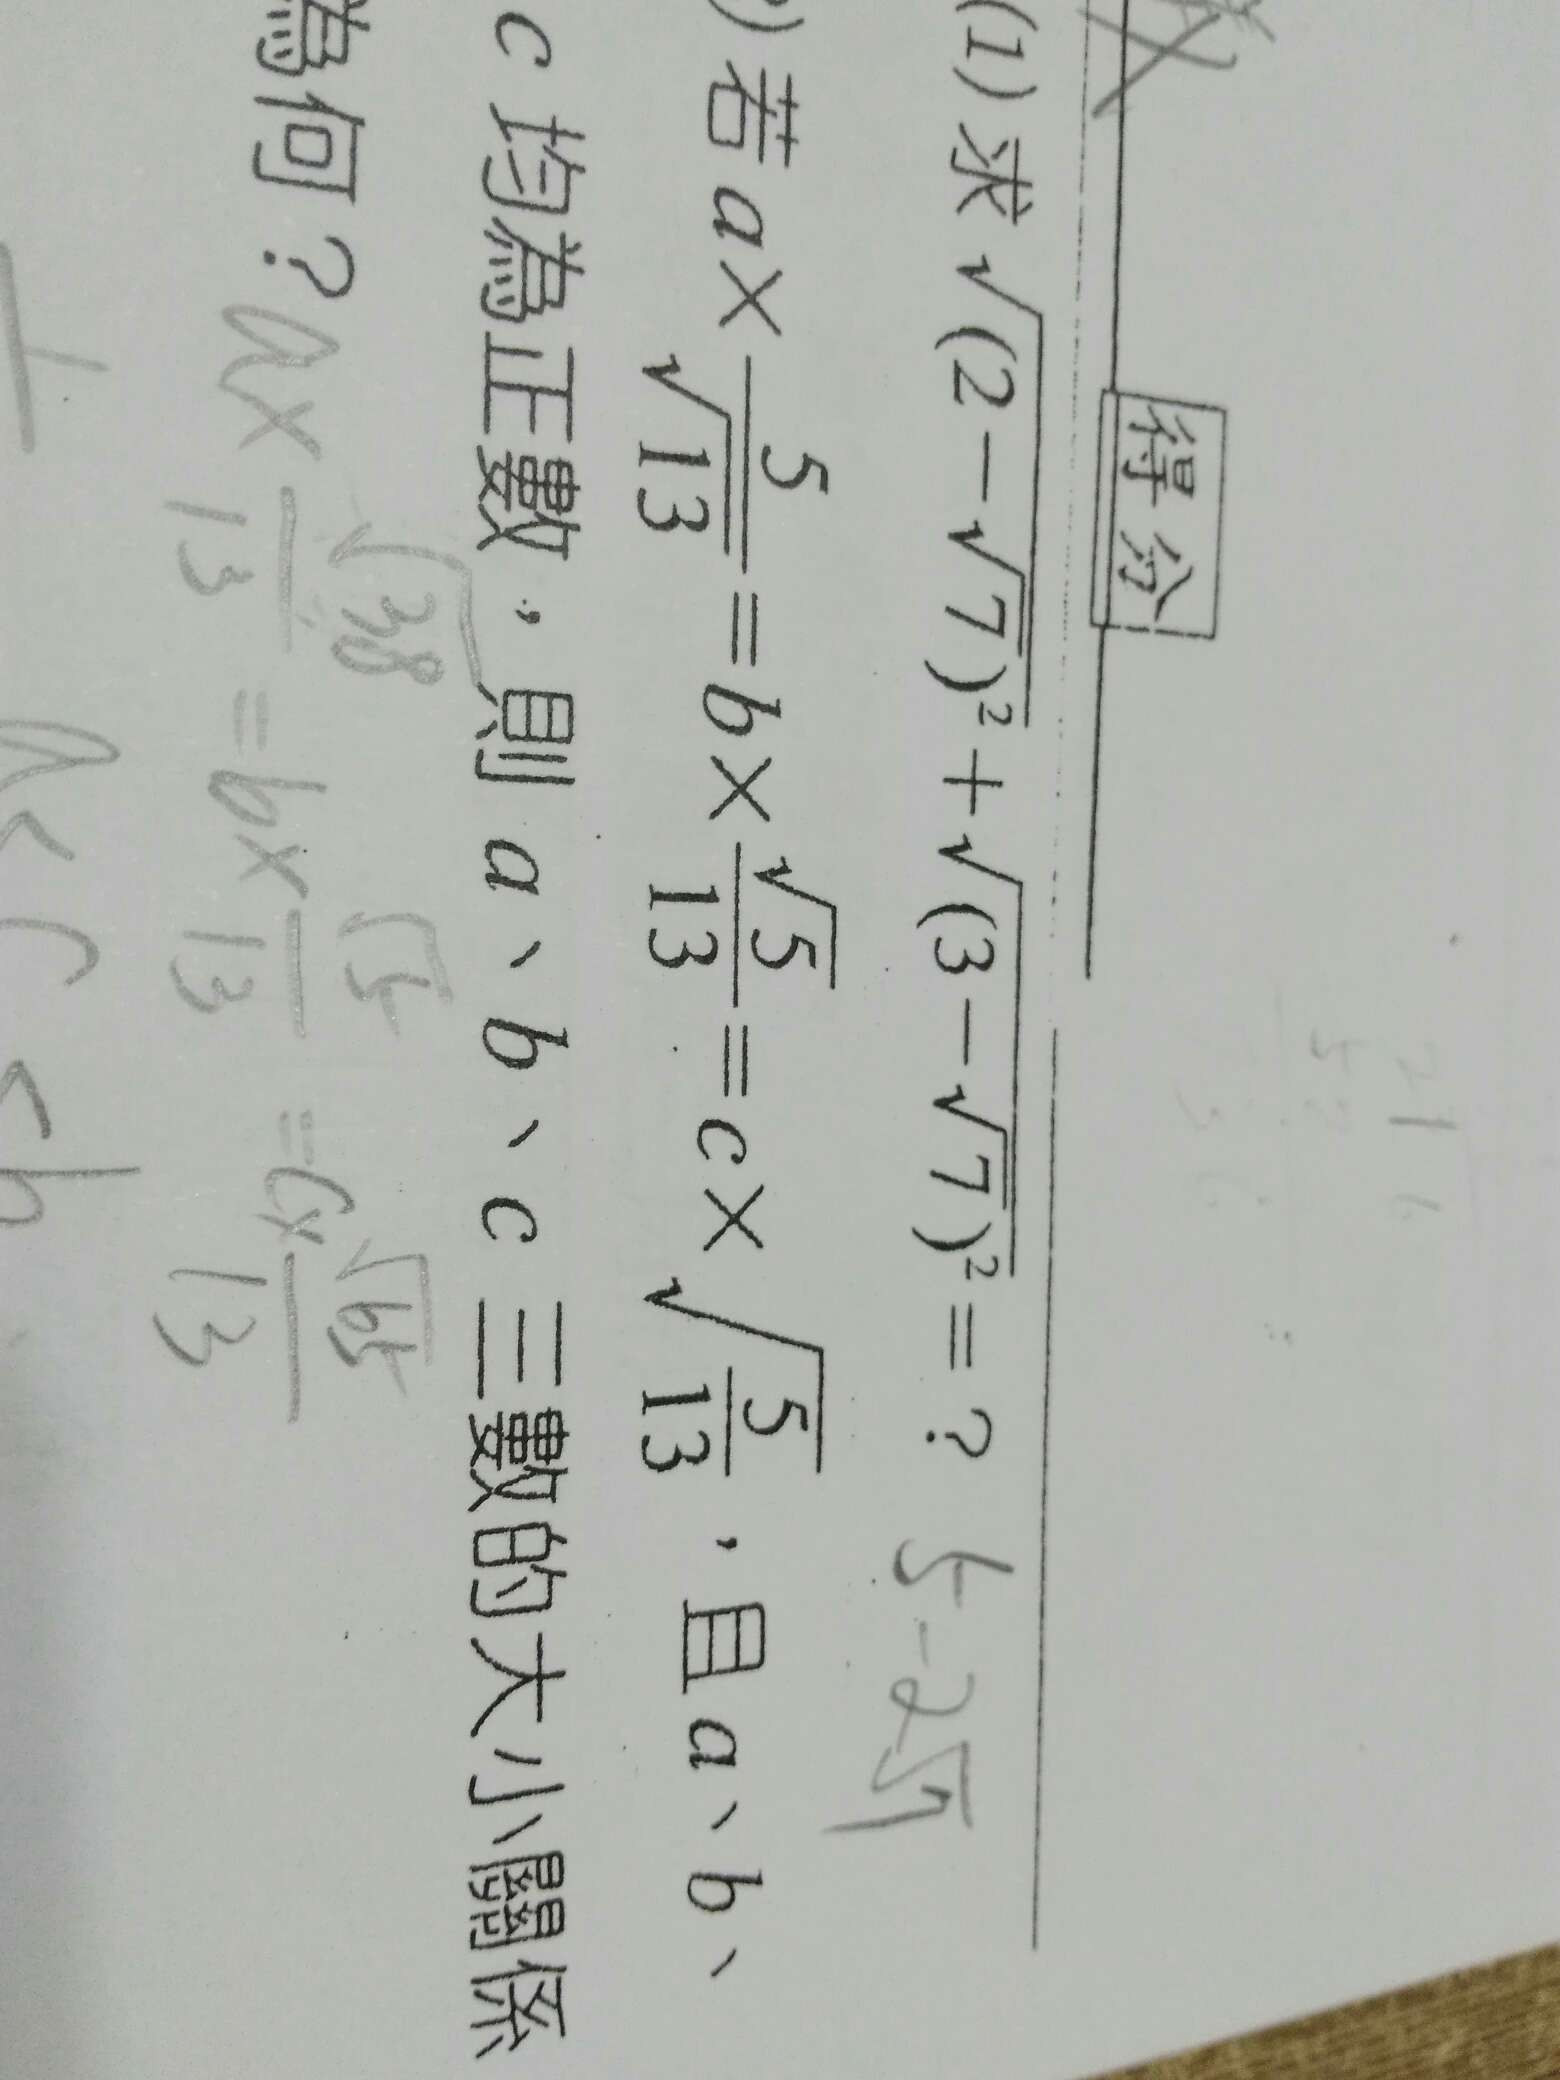 得分
(1)求√(2-√7)²+√(3-√7)²=? 5-2√7
)若a×5/√13=b×√5/13=c×√(5/13),且a、b、
c均為正數,則a、b、c三數的大小關係
為何?
a×√38/13=b×√5/13=c×√65/13
a<c<b